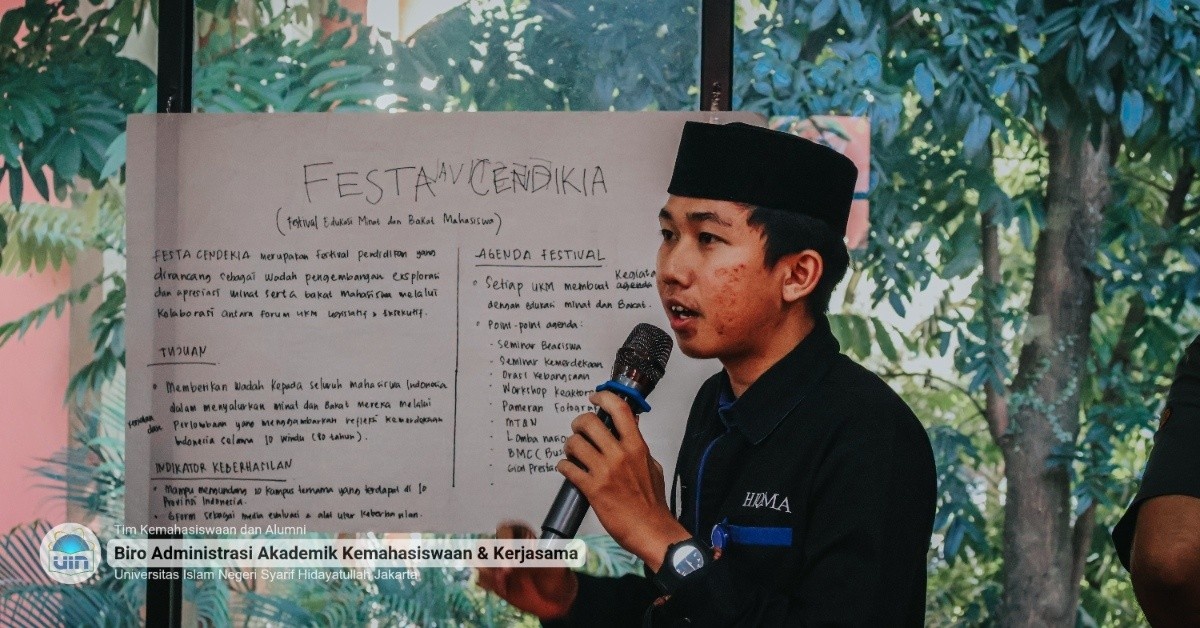 FESTA CENDIKIA
(Festival Edukasi Minat dan Bakat Mahasiswa)
FESTA CENDEKIA merupakan festival pendidikan yang
dirancang sebagai wadah pengembangan eksplorasi
dan apresiasi minat serta bakat Mahasiswa melalui
Kolaborasi antara forum UKM Legislatif & Eksekutif.
TUJUAN
• Memberikan wadah kepada seluruh mahasiswa Indonesia
dalam menyalurkan minat dan Bakat mereka melalui
Perlombaan yang menggambarkan refleksi kemerdekaan
Indonesia selama 10 windu (80 tahun).
INDIKATOR KEBERHASILAN
• Mampu memundang 10 kampus ternama yang terdapat di 10
Provinsi Indonesia.
• Gform sebagai media evaluasi & alat ukur keberhasilan.
AGENDA FESTIVAL
• Setiap UKM membuat Kegiata
dengan edukasi minat dan Bakat.
• Point-point agenda:
- Seminar Beasiswa
- Seminar Kemerdekaan
- Orasi Kebangsaan
- Workshop
- Pameran Fotograf
- MT&N
- Lomba nasio
- BMC (Bus
- Gion Presta
HIQMA
Tim Kemahasiswaan dan Alumni
UIN
Biro Administrasi Akademik Kemahasiswaan & Kerjasama
Universitas Islam Negeri Syarif Hidayatullah Jakarta